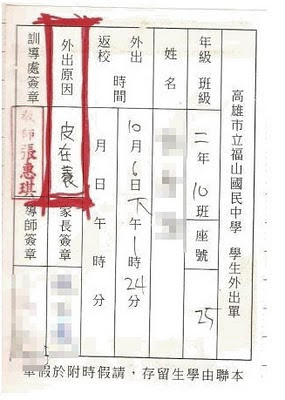 高雄市立福山國民中學 學生外出單
年級 班級 二年10班 座號 25
姓名
外出 時間 10月6日下午1時24分
返校 月 日 午 時 分
外出原因 皮在養 家長簽章
訓導處簽章 教師張惠琪 導師簽章
本聯由學生留存，請假時附於假單